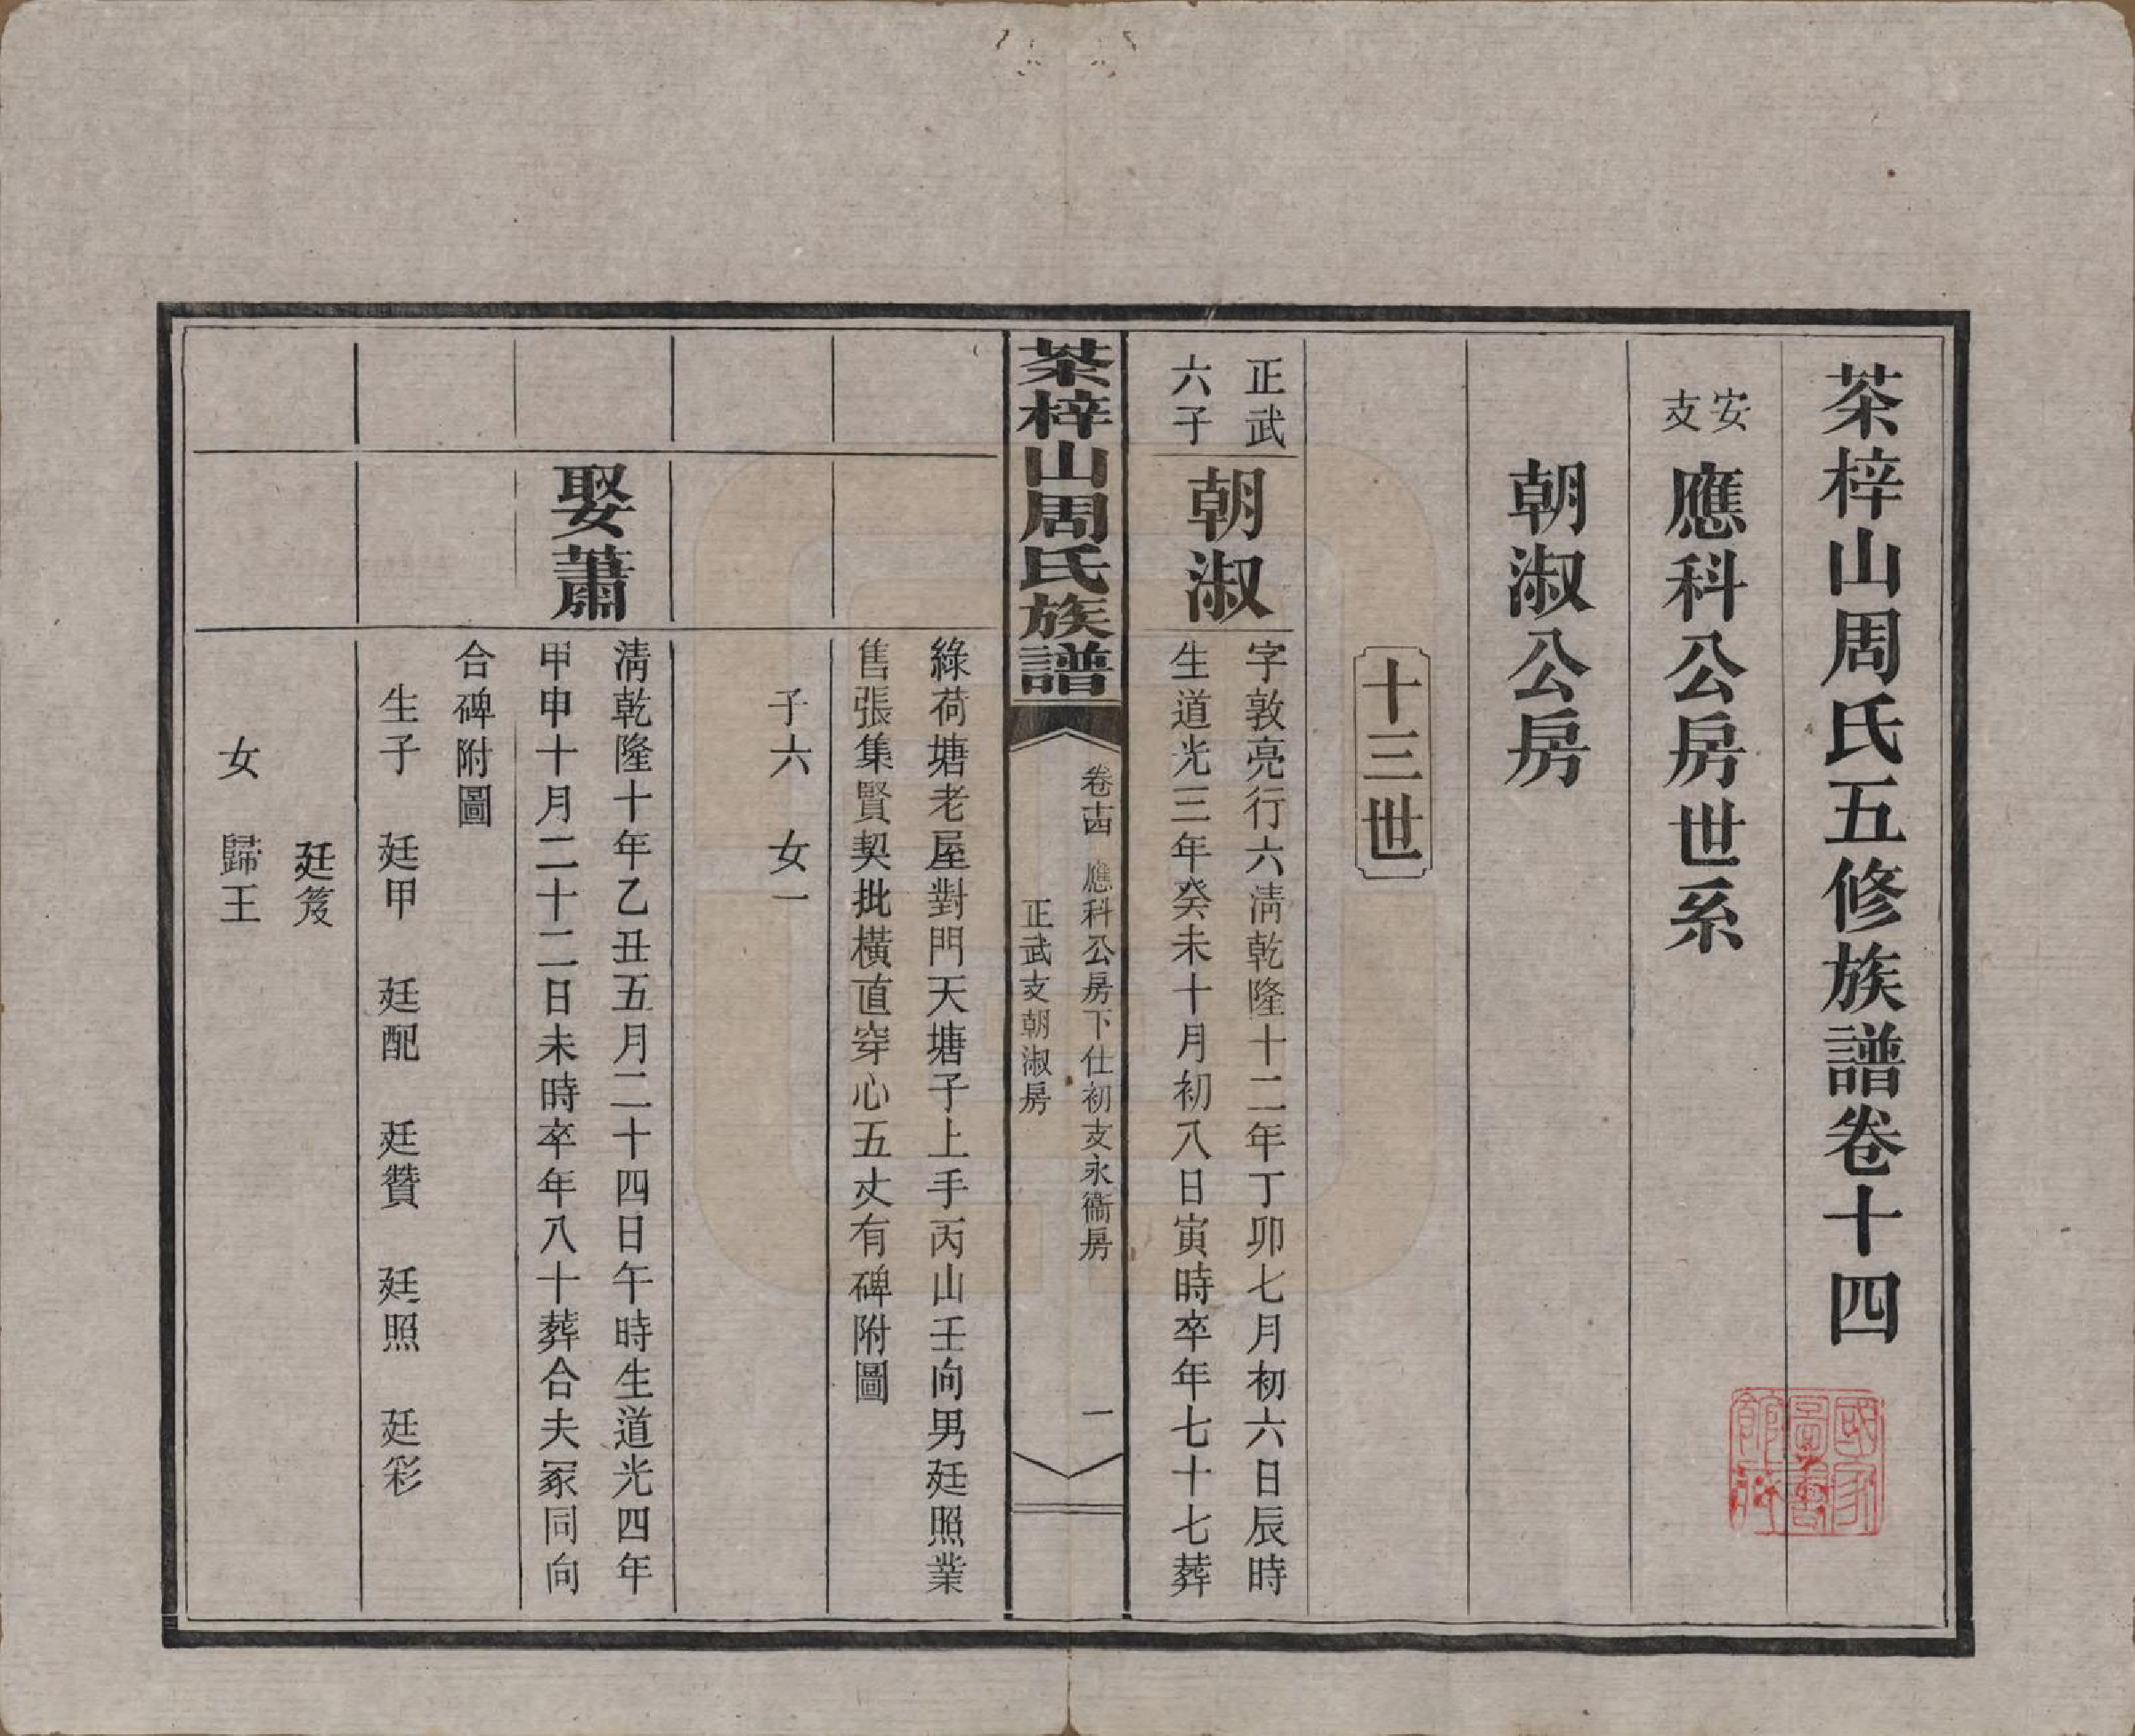 茶梓山周氏五修族譜卷十四
安支
應科公房世系
朝淑公房
十三世
正武
六子
朝淑
字敦亮行六淸乾隆十二年丁卯七月初六日辰時
生道光三年癸未十月初八日寅時卒年七十七葬
茶梓山周氏族譜
卷十四 應科公房下仕初支永衞房
正武支朝淑房
一
綠荷塘老屋對門天塘子上手丙山壬向男廷照業
售張集賢契批橫直穿心五丈有碑附圖
子六 女一
娶蕭
淸乾隆十年乙丑五月二十四日午時生道光四年
甲申十月二十二日未時卒年八十葬合夫冢同向
合碑附圖
生子 廷甲 廷配 廷贊 廷照 廷彩
廷笈
女 歸王
國家圖書館藏